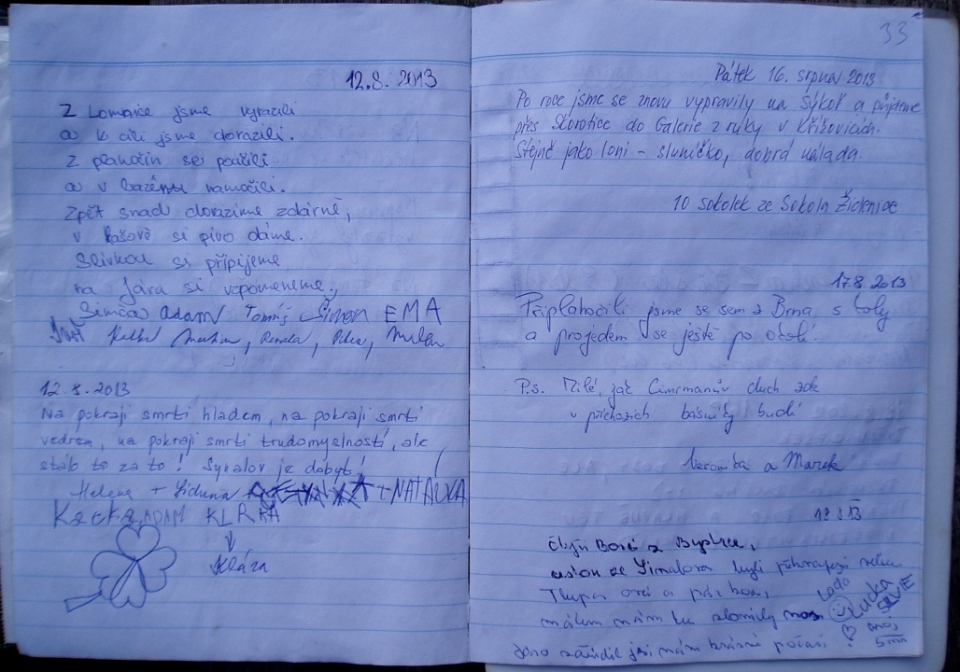 12.8.2013
Z Lomnice jsme vyrazili
a k cíli jsme dorazili.
Z planočin se poučili
a v bazénu namočili.
Zpět snad dorazíme zdárně,
v Rašově si pivo dáme.
Slivkou si připijeme
na Járu si vzpomeneme.
Simča ADAM Tomáš Šimon EMA
Renata, Petra, Milan
12.8.2013
Na pokraji smrti hladem, na pokraji smrti
vedrem, na pokraji smrti trudomyslností, ale
stálo to za to! Synalov je dobytý!
Helena + Liduna + NATALKA
Kačka, ADAM KLRRA
Klára
33
Pátek 16. srpna 2013
Po roce jsme se znovu vypravily na Sýkoř a půjdeme
přes Skorotice do Galerie z ruky v Křížovicích.
Stejně jako loni - sluníčko, dobrá nálada.
10 sokolek ze Sokola Židenice
17.8.2013
Připlahočili jsme se sem z Brna s koly
a projedem se ještě po okolí.
P.s. Milé, jak Cimrmanův duch zde
v příchozích básníky budí
Veronika a Marek
18.8.13
Čtyři z Bystrce,
ze Sinalova byli
Tlupa ovcí a pár koz,
málem nám tu zlomily nos.
Járo zařídil jsi nám krásné počasí!
Lada
LUCKA
SILVIE